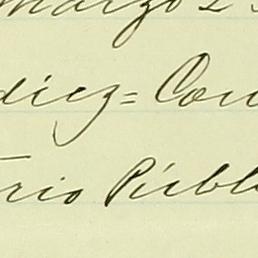 Marzo 2
diez= Con
rio Públ